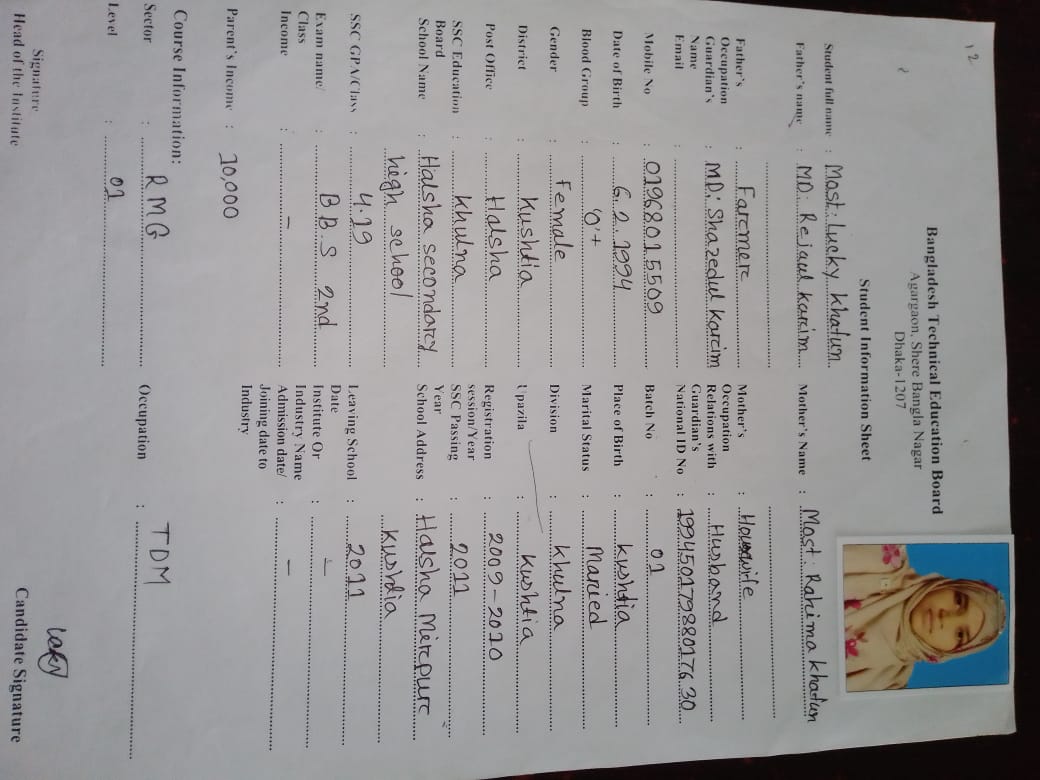 12
Bangladesh Technical Education Board
Agargaon, Shere Bangla Nagar
Dhaka-1207
Student Information Sheet
Student full name : Most: Lucky Khatun
Father's name : MD: Rejaul karim Mother's Name : Most: Rahima khatun
Father's Occupation : Farmer Mother's Occupation : Housewife
Guardian's Name : MD: Shazedul karim Relations with Guardian's : Husband
Email : National ID No : 19945017988017630
Mobile No : 01968015509 Batch No : 01
Date of Birth : 6.2.1994 Place of Birth : kushtia
Blood Group : 'O'+ Marital Status : Maried
Gender : Female Division : khulna
District : kushtia Upazila : kushtia
Post Office : Halsha Registration session/Year : 2009-2010
SSC Education Board : khulna SSC Passing Year : 2011
School Name : Halsha secondary School Address : Halsha Mirpur
high school kushtia
SSC GPA/Class : 4.19 Leaving School Date : 2011
Exam name/ Class : B B.S 2nd Institute Or Industry Name : –
Income : – Admission date/ Joining date to Industry : –
Parent's Income : 10,000
Course Information:
Sector : RMG Occupation : TDM
Level : 01
Signature
Head of the Institute Candidate Signature